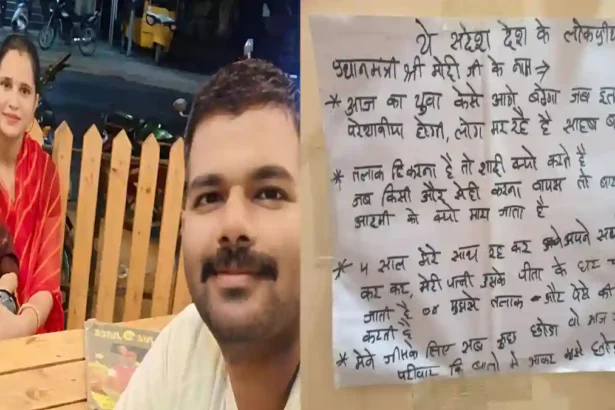 ये संदेश देश के लोकप्रीय
प्रधानमंत्री श्री मोदी जी के नाम →
* आज का युवा केसे आगे बढेगा जब इत
परेशानीया होगी, लोग मर रहे है साहब
* तलाक हि करना है तो शादी क्यो करते है
जब किसी और मेही करना वापस तो
आदमी को क्यो मारा जाता है
* 4 साल मेरे साथ रह कर अपने अपने
कर कर, मेरी पत्नी उसके पिता के घर
जाती है or मुझसे तलाक और पेसे की
करती है
* मेने जिसके लिए सब कुछ छोडा वो आज
परीवार कि बातो मे आकर मुझे